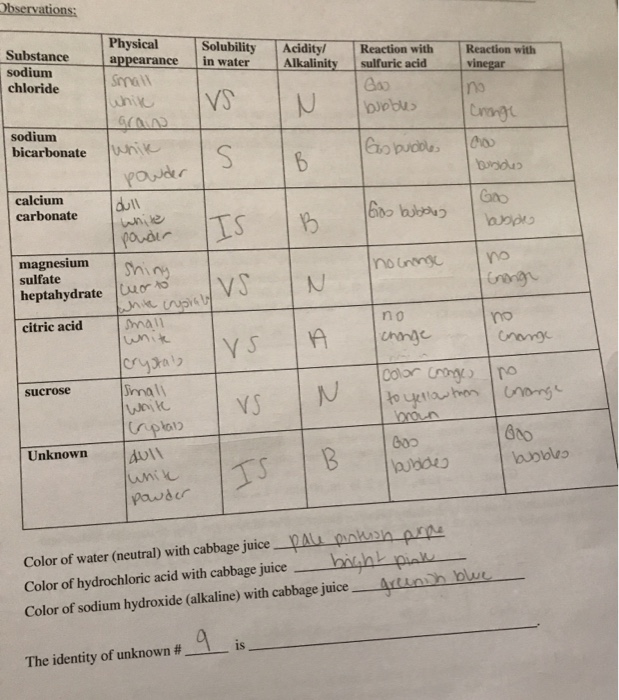 Observations:
Substance
Physical appearance
Solubility in water
Acidity/ Alkalinity
Reaction with sulfuric acid
Reaction with vinegar
sodium chloride
small
white
grains
VS
N
Gas
bubbles
no
change
sodium bicarbonate
white
powder
S
B
Gas bubbles
Gas
bubbles
calcium carbonate
dull
white
powder
IS
B
Gas bubbles
Gas
bubbles
magnesium sulfate heptahydrate
shiny
white crystals
VS
N
no change
no
change
citric acid
small
white
crystals
VS
A
no
change
no
change
sucrose
small
white
crystals
VS
N
color changes
to yellow then
brown
no
change
Unknown
dull
white
powder
IS
B
Gas
bubbles
Gas
bubbles
Color of water (neutral) with cabbage juice pale pinkish purple
Color of hydrochloric acid with cabbage juice bright pink
Color of sodium hydroxide (alkaline) with cabbage juice greenish blue
The identity of unknown # 9 is